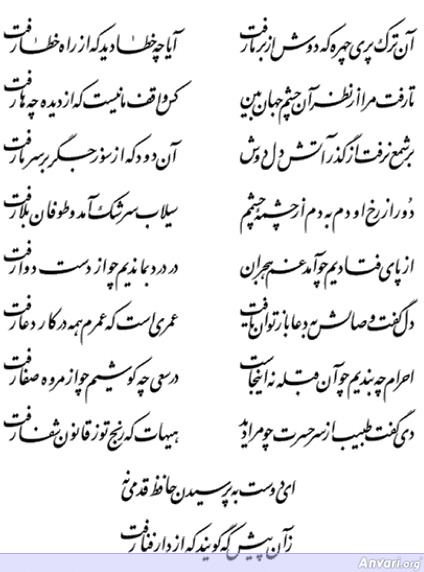 آن ترک پری چهره که دوش از بر ما رفت
آیا چه خطا دید که از راه خطا رفت
تا رفت مرا از نظر آن چشم جهان بین
کس واقف ما نیست که از دیده چه ها رفت
بر شمع نرفت از گذر آتش دل دوش
آن دود که از سوز جگر بر سر ما رفت
دور از رخ او دم به دم از چشمه چشمم
سیلاب سرشک آمد و طوفان بلا رفت
از پای فتادیم چو آمد غم هجران
در درد بماندیم چو از دست دوا رفت
دل گفت وصالش به دعا باز توان یافت
عمری است که عمرم همه در کار دعا رفت
احرام چه بندیم چو آن قبله نه اینجاست
در سعی چه کوشیم چو از مروه صفا رفت
دی گفت طبیب از سر حسرت چو مرا دید
هیهات که رنج تو ز قانون شفا رفت
ای دوست به پرسیدن حافظ قدمی نه
زان پیش که گویند که از دار فنا رفت
Anvari.org